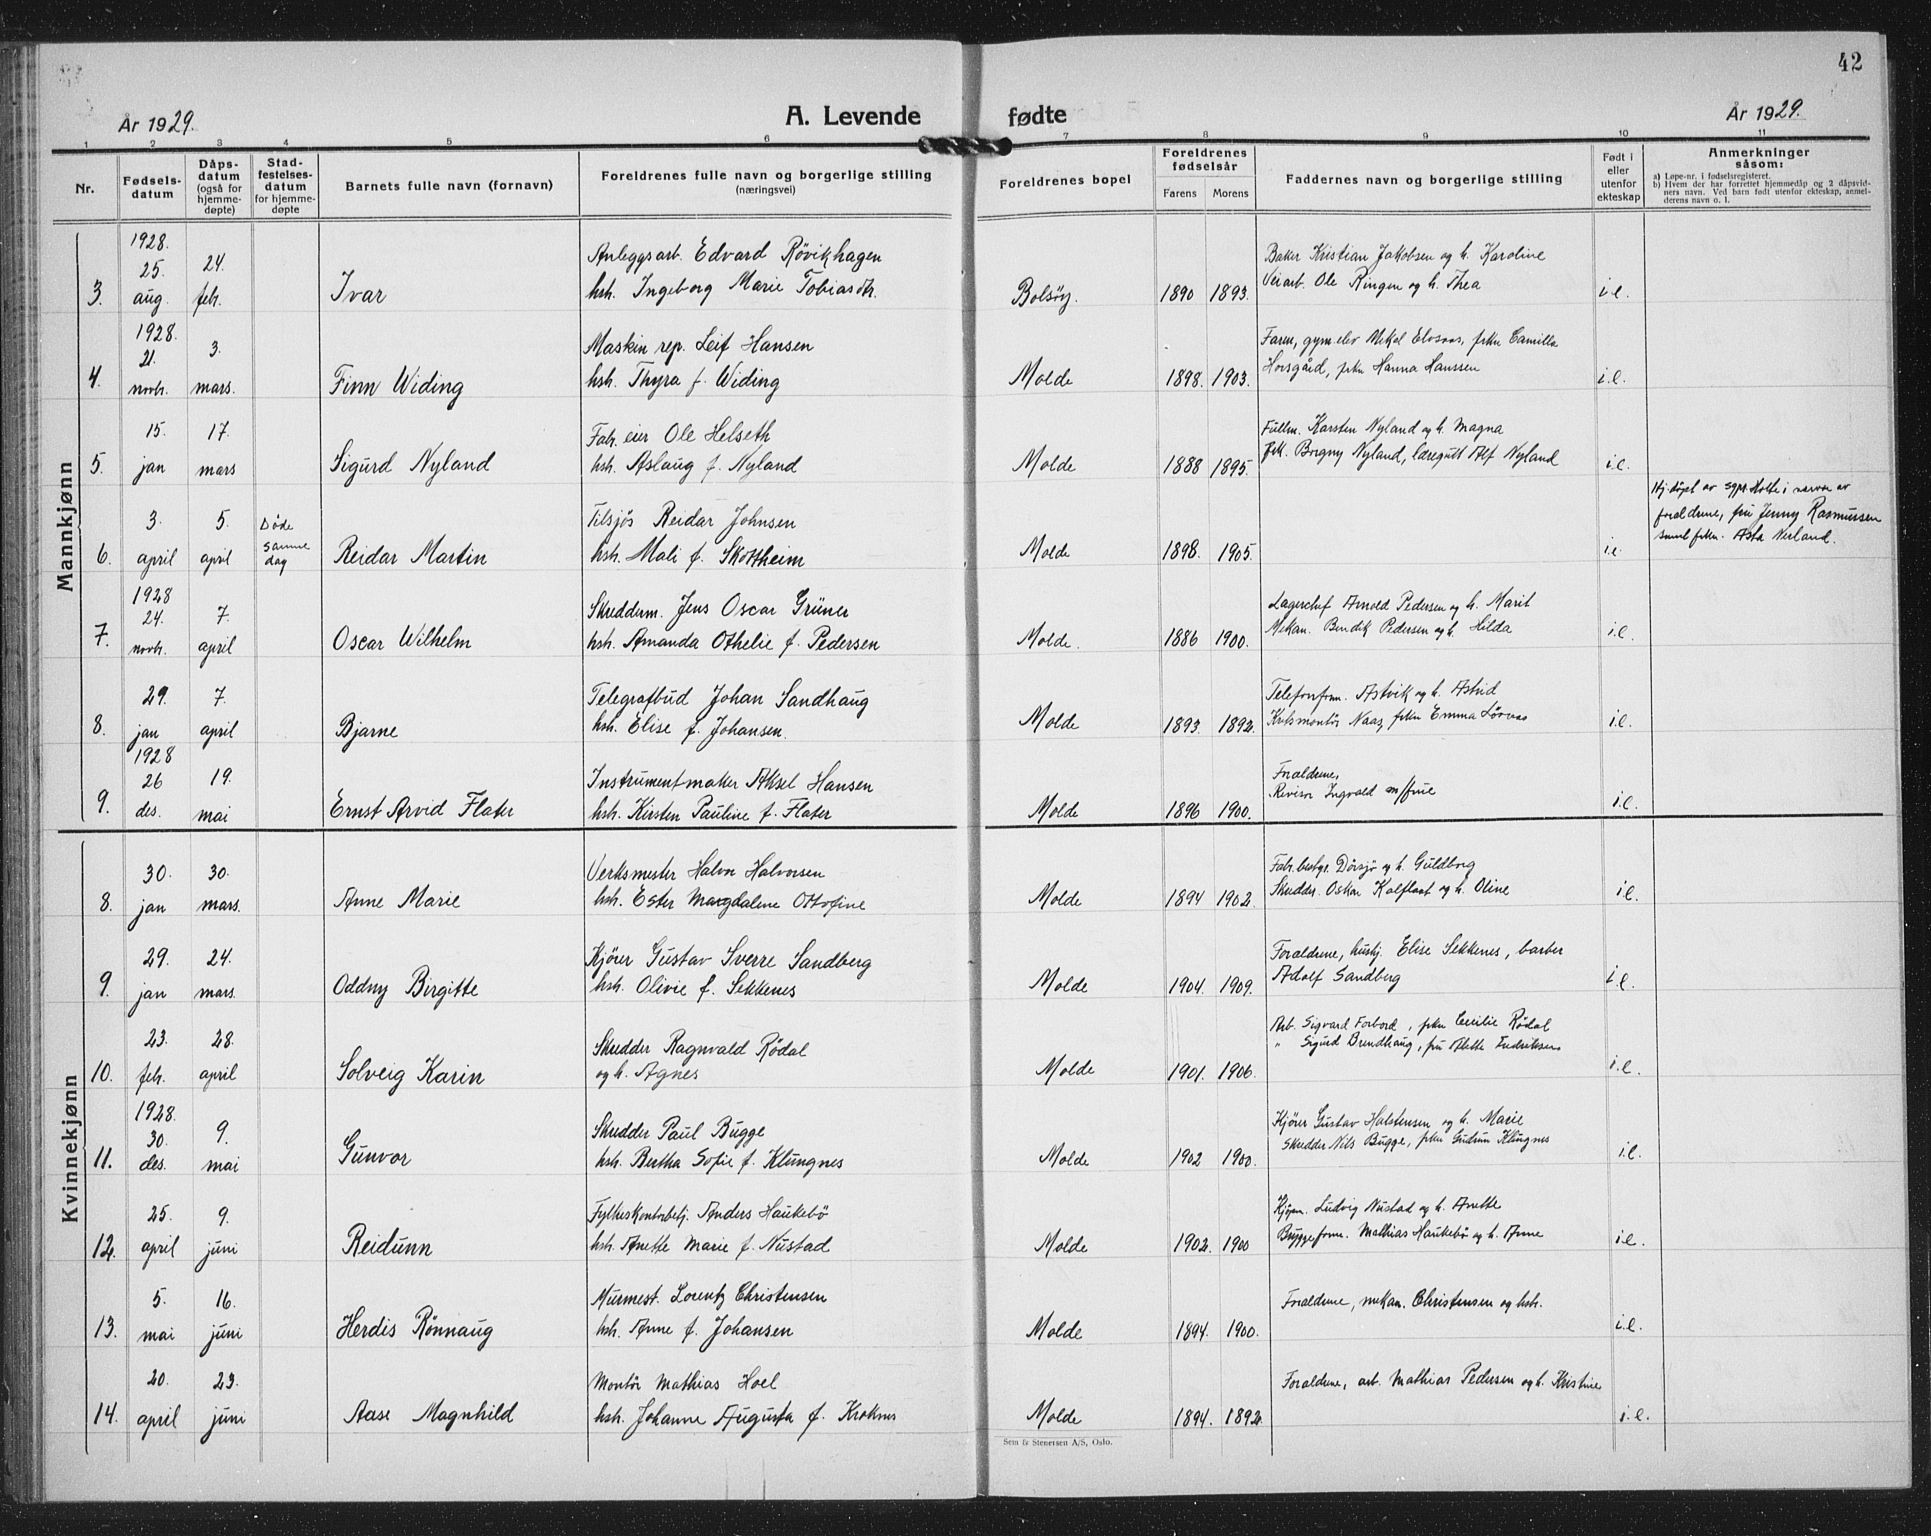 42
År 1929.
A. Levende fødte
År 1929.
1 2 3 4 5 6 7 8 9 10 11
Nr.
Fødsels-
datum
Dåps-
datum
(også for
hjemme-
døpte)
Stad-
festelses-
datum
for hjemme-
døpte
Barnets fulle navn (fornavn)
Foreldrenes fulle navn og borgerlige stilling
(næringsvei)
Foreldrenes bopel
Foreldrenes
fødselsår
Farens Morens
Faddernes navn og borgerlige stilling
Født i
eller
utenfor
ekteskap
Anmerkninger
såsom:
a) Løpe-nr. i fødselsregisteret.
b) Hvem der har forrettet hjemmedåp og 2 dåpsvid-
ners navn. Ved barn født utenfor ekteskap, anmel-
derens navn o. l.
Mannkjønn
1928.
25. 24. Anleggsarb. Edvard Røvikhagen Baker Kristian Jakobsen og h. Karoline
3. aug. feb. Ivar hsh. Ingeborg Marie Tobiasdtr. Bolsøy. 1890 1893. Veiarb. Ole Ringen og h. Thea i.e.
1928.
21. 3. Maskin rep. Leif Hansen Faren, gym.elev Mikal frkn Camilla
4. novb. mars. Finn Widing hsh. Thyra f. Widing Molde 1898. 1903. Horsgård, frkn Hanna Hanssen i.e.
15. 17. Fab. eier Ole Helseth Fullm. Karsten Nyland og h. Magna
5. jan mars Sigurd Nyland hsh. Aslaug f. Nyland Molde 1888 1895. frk. Borgny Nyland, læregutt Alf Nyland i.e.
3. 5. Døde Tilsjøs Reidar Johnsen Hj.døpt av sgpr. Holte i nærvær av
6. april april samme dag Reidar Martin hsh. Mali f. Skottheim Molde 1898. 1905. i.e. foreldrene, fru Jenny Rasmussen
samt frkn. Asta Nerland.
1928
24. 7. Skredderm. Jens Oscar Grüner Lagerchef Arnold Pedersen og h. Marit
7. novb. april Oscar Wilhelm hsh. Amanda Othelie f. Pedersen Molde. 1886 1900. Mekan. Bendik Pedersen og h. Hilda i.e.
29. 7. Telegrafbud Johan Sandhaug Telefonform. Astvik og h. Astrid
8. jan april Bjarne hsh. Elise f. Johansen. Molde 1893. 1892. Krlsmontør Naas, frkn Emma i.e.
1928
26 19. Instrumentmaker Aksel Hansen Forældrene,
9. des. mai Ernst Arvid Flater hsh. Kirsten Pauline f. Flater Molde 1896 1900. Revisor Ingvald m/frue i.e.
Kvinnekjønn
30. 30. Verksmester Halvor Halvorsen Fab.bestyr. Dørsjø og h. Guldborg
8. jan mars. Anne Marie hsh. Ester Magdalene Ottofine Molde 1894 1902. Skredder. Oskar Kalflaat og h. Oline i.e.
29. 24. Kjører Gustav Sverre Sandberg Forældrene, hushj. Elise Sekkenes, barber
9. jan mars. Oddny Birgitte hsh. Olivie f. Sekkenes Molde 1904. 1909. Adolf Sandberg i.e.
23. 28. Skredder Ragnvald Rødal Arb. Sigvard Forbord, frkn Cecilie Rødal
10. feb. april Solveig Karin og h. Agnes Molde 1901. 1906. " Sigurd Brendhaug, fru Mette Endriksen i.e.
1928.
30. 9. Skredder Paul Bugge Kjører Gustav Halstensen og h. Marie
11. des. mai Gunvor hsh. Bertha Sofie f. Klungnes Molde 1902 1900. Skredder Nils Bugge, frkn Gudrun Klungnes i.e.
25. 9. Fylkeskontorbetj. Anders Haukebø Kjøpm. Ludvig Nustad og h. Anette
12. april juni Reidunn hsh. Anette Marie f. Nustad Molde 1902. 1900 Byggeform. Mathias Haukebø og h. Anne i.e.
5. 16. Murmest. Lorentz Christensen Forældrene, mekan. Christensen og hsh.
13. mai juni Herdis Rønnaug hsh. Anne f. Johansen Molde 1894. 1900. i.e.
20. 23. Montør Mathias Hoel Forældrene, arb. Mathias Pedersen og h. Kristine
14. april juni Aase Magnhild hsh. Johanne Augusta f. Kroknes Molde 1894. 1892. i.e.
Sem & Stenersen A/S, Oslo.